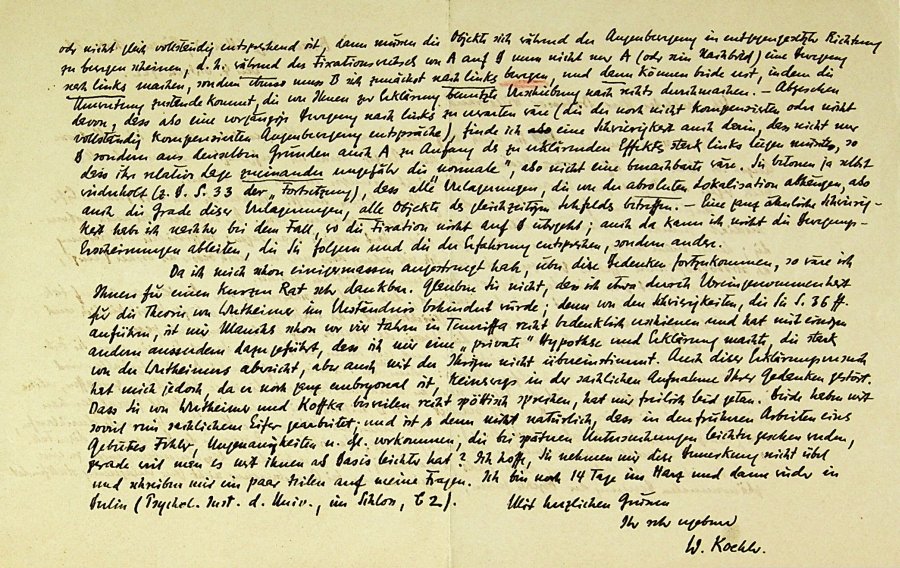 oder nicht gleich vollständig entsprechend ist, dann müssen die Objekte sich während der Augenbewegung in entgegengesetzter Richtung
zu bewegen scheinen, d. h. während des Fixationswechsels von A auf B muss nicht nur A (oder sein Nachbild) eine Bewegung
nach links machen, sondern ebenso muss B sich zunächst nach links bewegen, und dann können beide erst, indem die
Umwertung zustande kommt, die von Ihnen zur Erklärung benutzte Verschiebung nach rechts durchmachen. – Abgesehen
davon, dass also eine vorgängige Bewegung nach links zu erwarten wäre (die der noch nicht kompensierten oder nicht
vollständig kompensierten Augenbewegung entspräche), finde ich also eine Schwierigkeit auch darin, dass nicht nur
B sondern aus denselben Gründen auch A zu Anfang des zu erklärenden Effektes stark links liegen müsste, so
dass ihre relative Lage zueinander ungefähr die „normale", also nicht eine benachbarte wäre. Sie betonen ja selbst
wiederholt (z. B. S. 33 der „Fortsetzung), dass alle Umlagerungen, die von der absoluten Lokalisation abhängen, also
auch die Grade dieser Umlagerungen, alle Objekte des gleichzeitigen Sehfeldes betreffen. – Eine ganz ähnliche Schwierig-
keit habe ich nachher bei dem Fall, wo die Fixation nicht auf B übergeht; auch da kann ich nicht die Bewegungs-
Erscheinungen ableiten, die Sie folgern und die der Erfahrung entsprechen, sondern andre.
Da ich mich schon einigermassen angestrengt habe, über diese Bedenken fortzukommen, so wäre ich
Ihnen für einen kurzen Rat sehr dankbar. Glauben Sie nicht, dass ich etwa durch Voreingenommenheit
für die Theorie von Wertheimer im Verständnis behindert würde; denn von den Schwierigkeiten, die Sie S. 36 ff.
anführen, ist mir Manches schon vor vier Jahren in Teneriffa recht bedenklich erschienen und hat mit einigen
andern ausserdem dazu geführt, dass ich mir eine „private" Hypothese und Erklärung machte, die stark
von der Wertheimers abweicht, aber auch mit der Ihrigen nicht übereinstimmt. Auch dieser Erklärungsversuch
hat mich jedoch, da er noch ganz embryonal ist, keineswegs in der sachlichen Aufnahme Ihrer Gedanken gestört.
Dass Sie von Wertheimer und Koffka bisweilen recht spöttisch sprechen, hat mir freilich leid getan. Beide haben mit
soviel rein sachlichem Eifer gearbeitet; und ist es denn nicht natürlich, dass in den früheren Arbeiten eines
Gebietes Fehler, Ungenauigkeiten u. dgl. vorkommen, die bei späteren Untersuchungen leichter gesehen werden,
gerade weil man es mit ihnen als Basis leichter hat? Ich hoffe, Sie nehmen mir diese Bemerkung nicht übel
und schreiben mir ein paar Zeilen auf meine Fragen. Ich bin noch 14 Tage im Harz und dann wieder in
Berlin (Psychol. Inst. d. Univ., im Schloss, C 2).
Mit herzlichen Grüssen
Ihr sehr ergebener
W. Koehler.